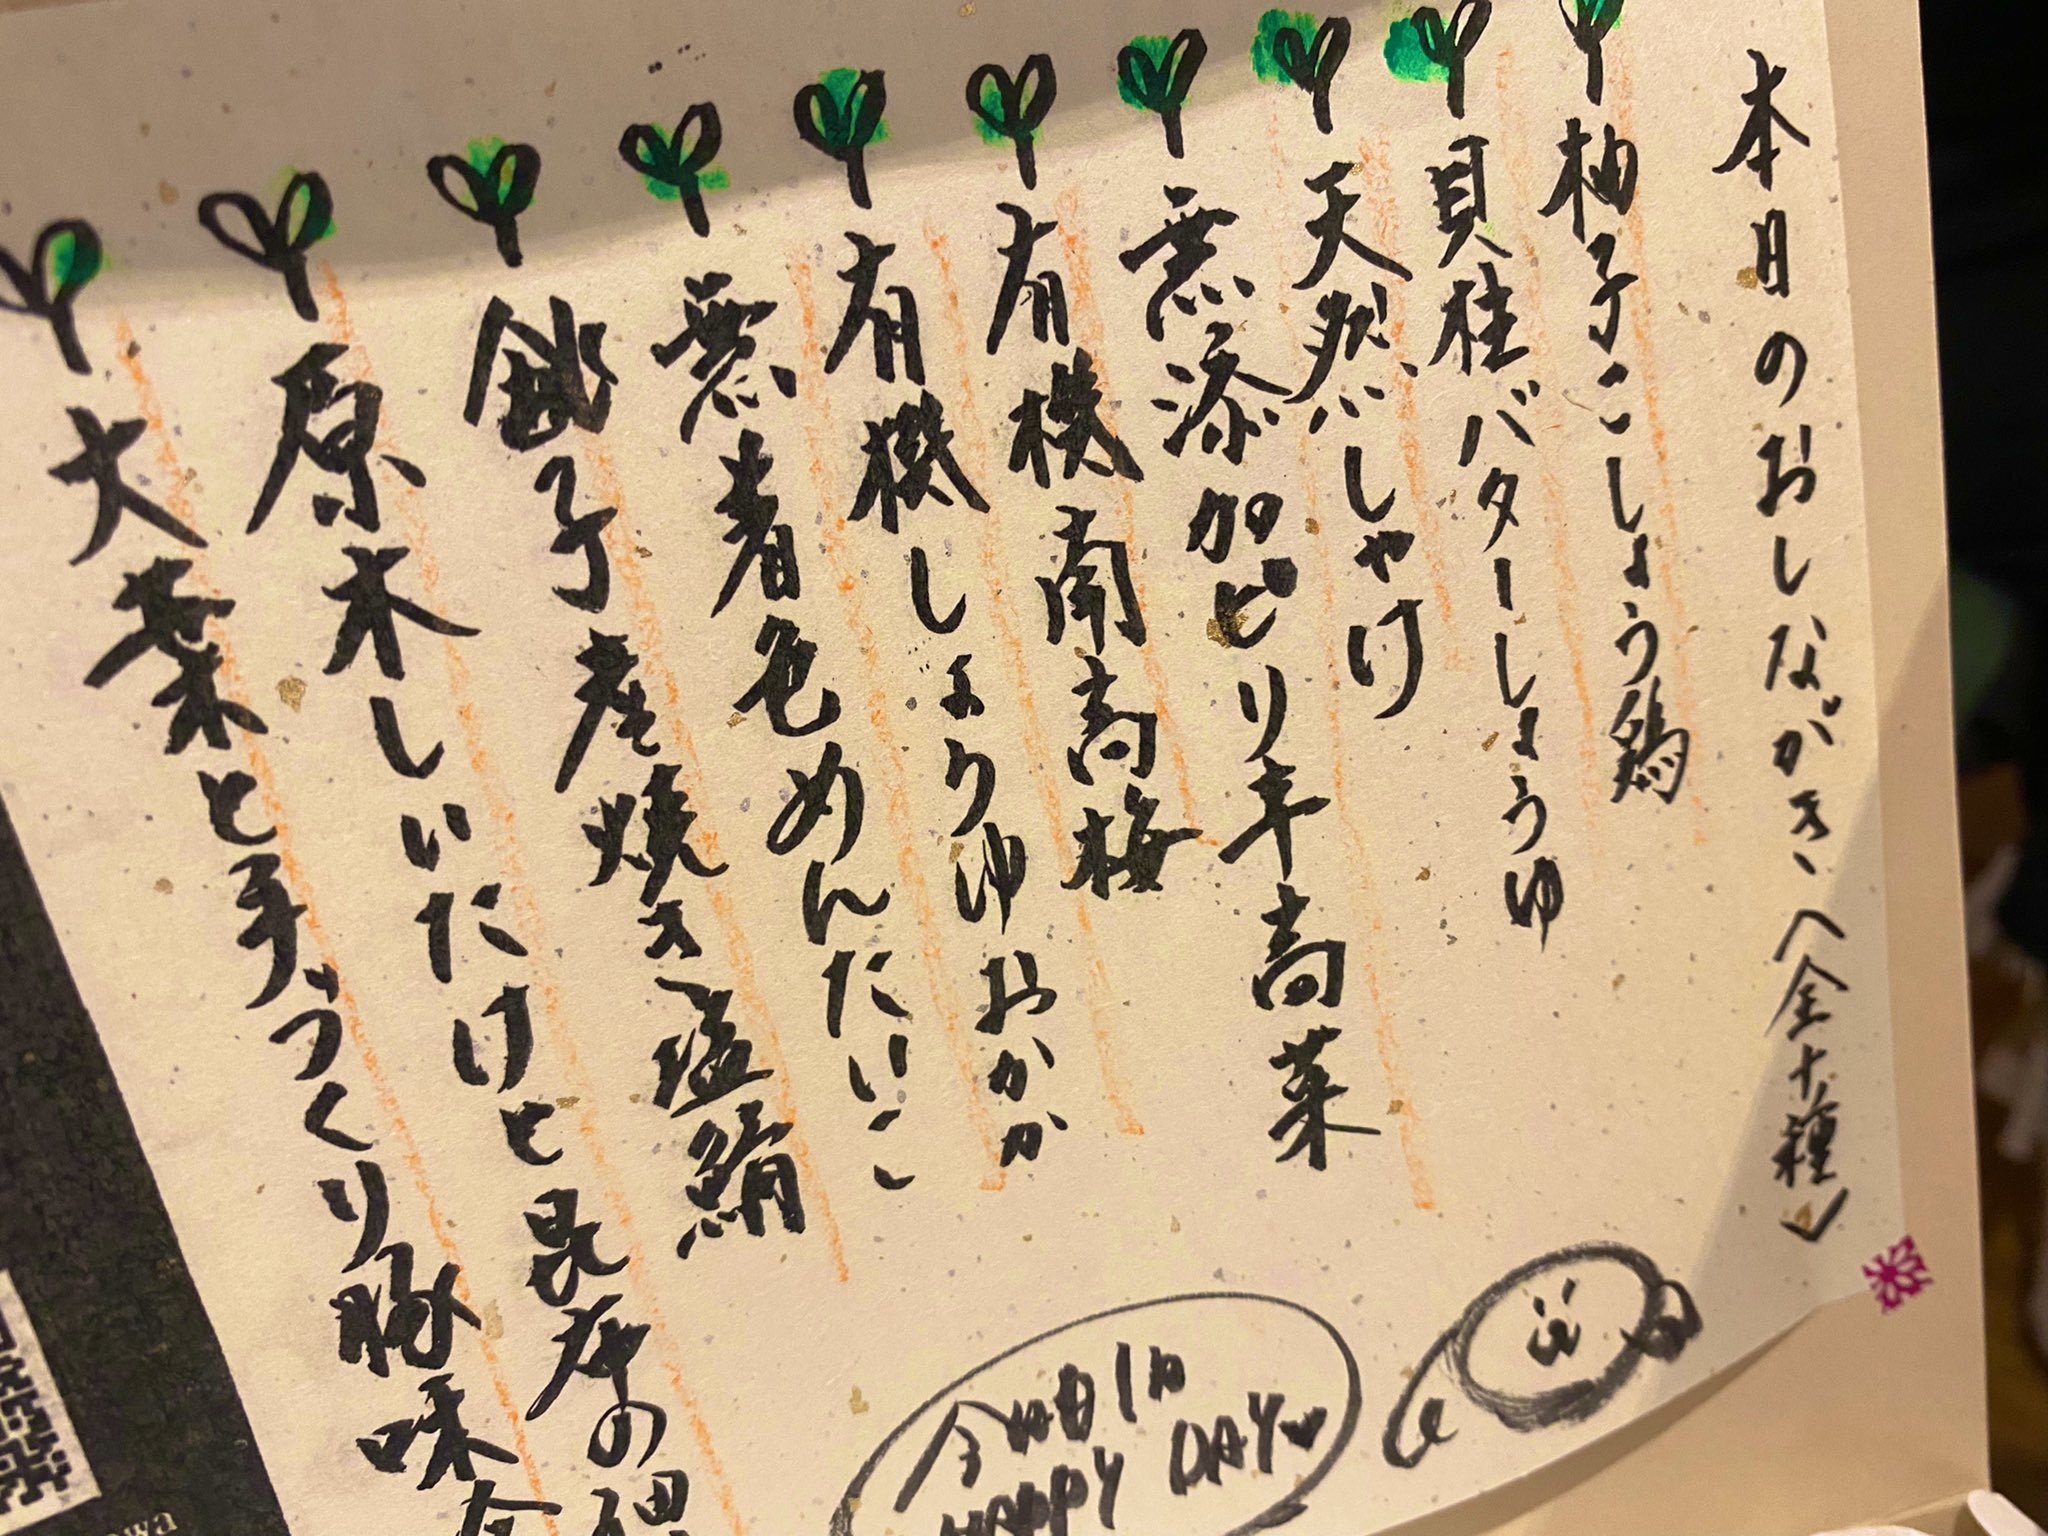 本日のおしながき〈全十種〉
柚子こしょう鶏
貝柱バターしょうゆ
天然しゃけ
無添加ピリ辛高菜
有機南高梅
有機しょうゆおかか
無着色めんたいこ
銚子産焼き塩鯖
原木しいたけと昆布の佃
大葉と手づくり豚味
今日も1日
HAPPY DAY♥
owa